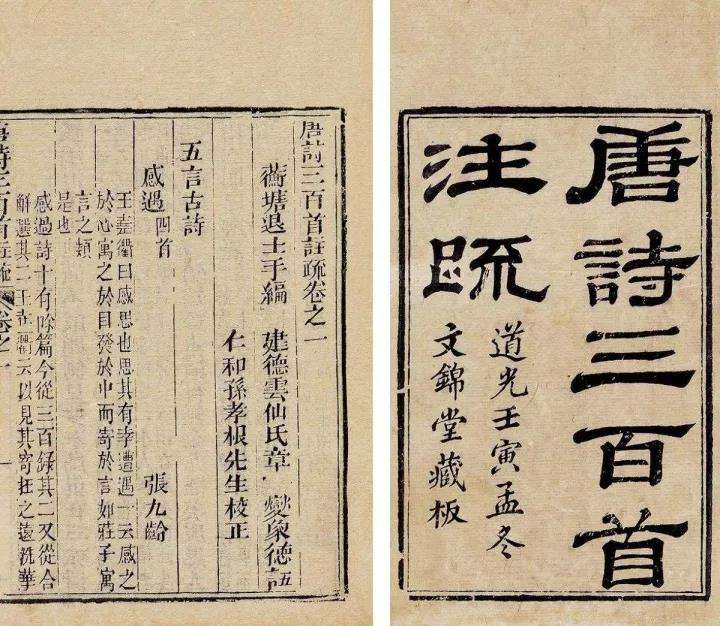 唐詩三百首
注疏
道光壬寅孟冬
文錦堂藏板
唐詩三百首註疏卷之一
蘅塘退士手編 建德雲仙氏章燮象德註
仁和孫孝根先生校正
五言古詩
感遇 四首 張九齡
王堯衢曰感思也思其有幸遭遇一云感之
於心寓之於目發於中而寄於言如莊子寓
言之類
是也
感遇詩十有餘篇今從三百錄其二又從合
解選其二王在衢云以見其寄託之遠洗華
唐詩三百首註疏 卷之一 一